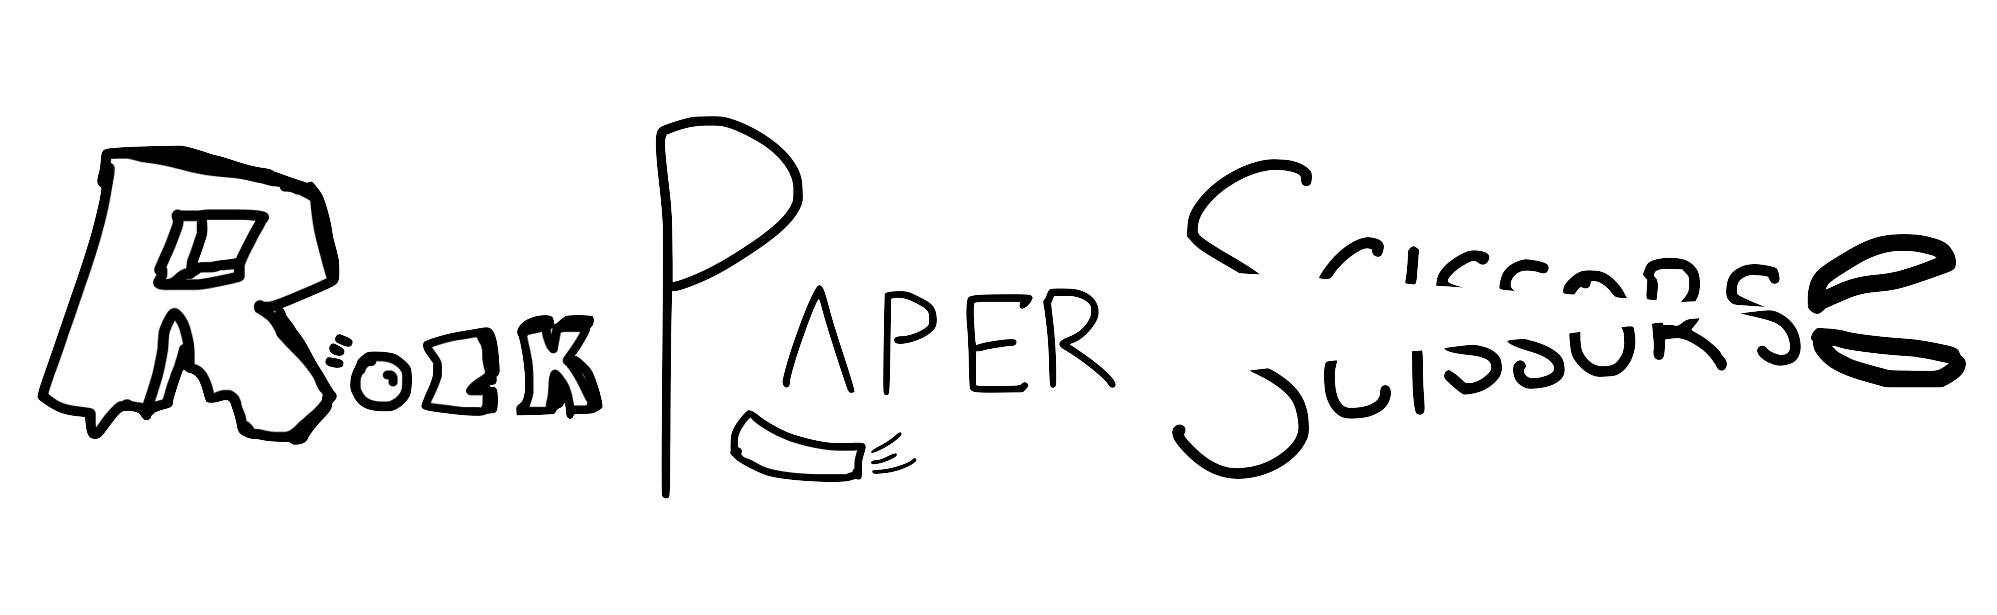 Rock Paper Scissors